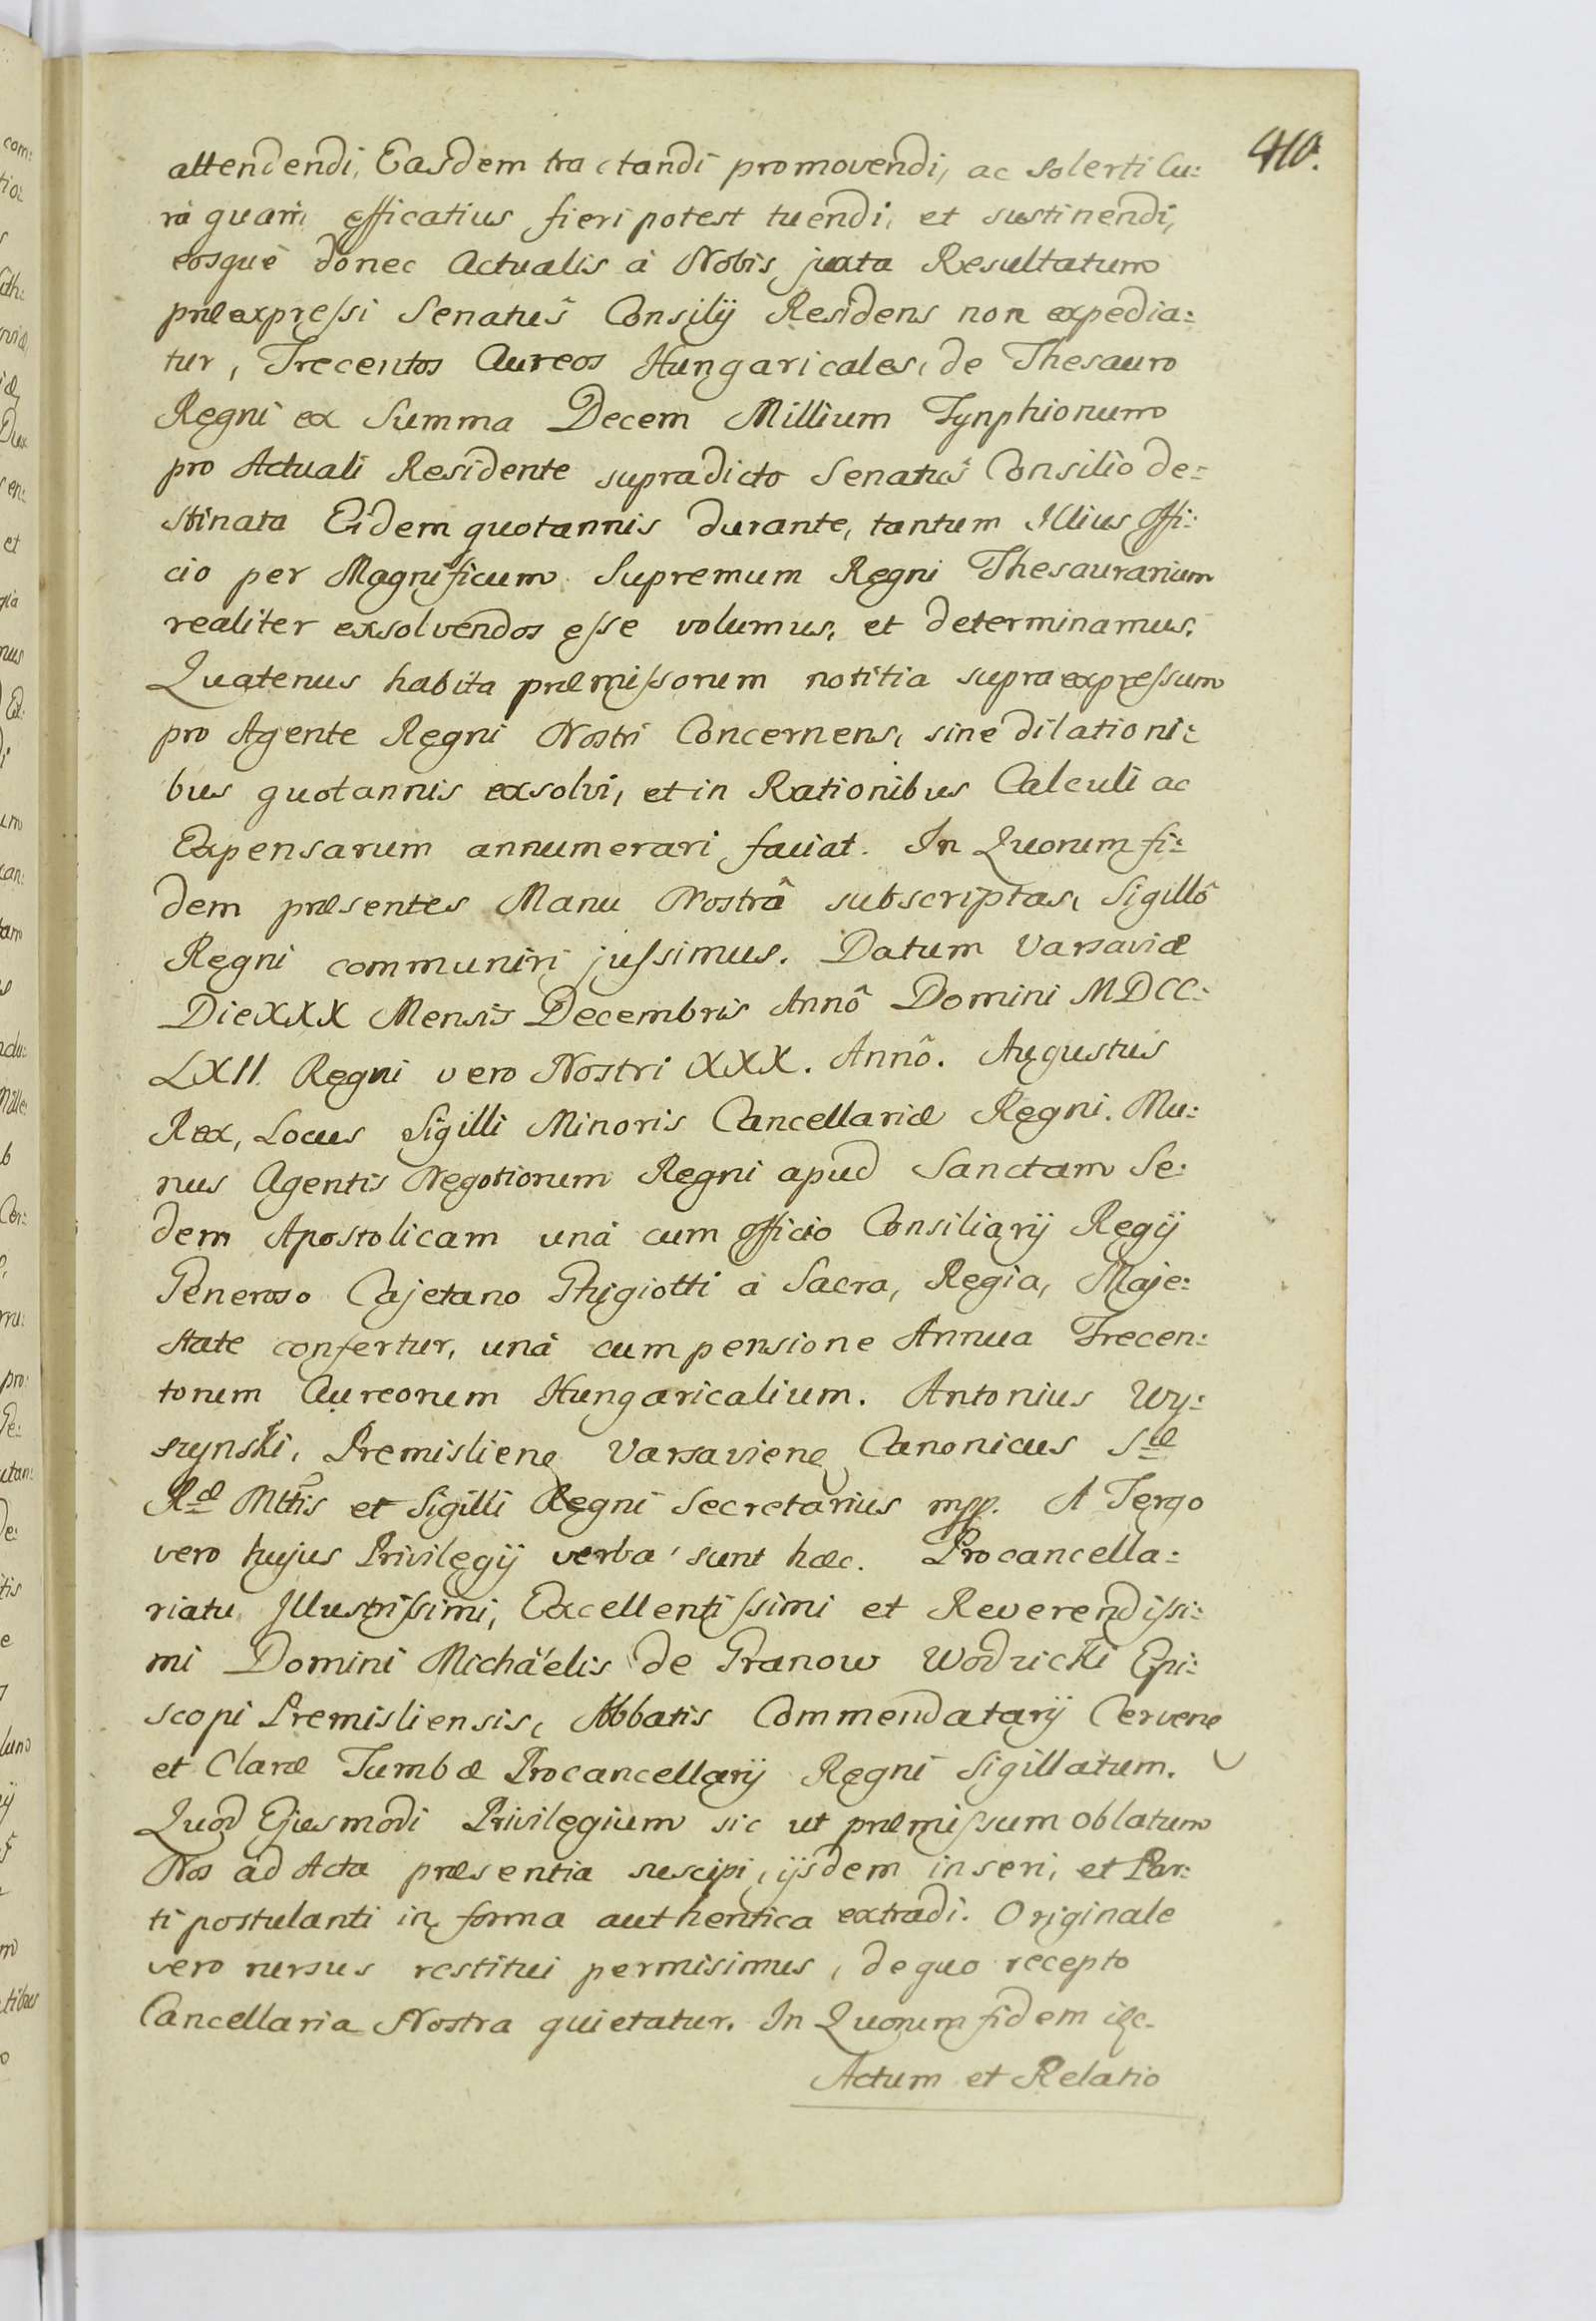 410.
attendendi, Easdem tractandi promovendi, ac solerti Cu:
rá quam efficatius fieri potest tuendi, et sustinendi,
eosque donec Actualis á Nobis juxta Resultatum
præexpressi Senatus Consilij Residens non expedia:
tur, Trecentos Aureos Hungaricales, de Thesauro
Regni ex Summa Decem Millium Tynphionum
pro Actuali Residente supradicto Senatus Consilio de:
stinata Eidem quotannis durante, tantum Illius Offi:
cio per Magnificum Supremum Regni Thesaurarium
realiter exsolvendos esse volumus, et determinamus.
Quatenus habita præmissorum notitia supraexpressum
pro Agente Regni Nostri Concernens, sine dilationi:
bus quotannis exsolvi, et in Rationibus Calculi ac
Expensarum annumerari faciat. In Quorum fi:
dem præsentes Manu Nostrâ subscriptas, Sigillô
Regni communiri jussimus. Datum Varsaviæ
Die XXX Mensis Decembris Annô Domini MDCC:
LXII. Regni vero Nostri XXX. Annô. Augustus
Rex, Locus Sigilli Minoris Cancellariæ Regni. Mu:
nus Agentis Negotiorum Regni apud Sanctam Se:
dem Apostolicam uná cum officio Consiliarij Regij
Generoso Cajetano Ghigiotti á Sacra, Regia, Maje:
state confertur, uná cum pensione Annua Trecen:
torum Aureorum Hungaricalium. Antonius Wy:
szynski, Premisliene Varsaviene Canonicus Sæ
Ræ Mttis et Sigilli Regni Secretarius mpp. A Tergo
vero hujus Privilegij verba sunt hæc. Procancella:
riatu Illustrissimi, Excellentissimi et Reverendissi:
mi Domini Michäelis de Granow Wodzicki Epi:
scopi Premisliensis, Abbatis Commendatarij Cervene
et Claræ Tumbæ Procancellarij Regni Sigillatum.
Quod Ejusmodi Privilegium sic ut præmissum oblatum
Nos ad Acta præsentia suscipi, ijsdem inseri, et Par:
ti postulanti in forma authentica extradi. Originale
vero rursus restitui permisimus, de quo recepto
Cancellaria Nostra quietatur. In Quorum fidem
Actum et Relatio